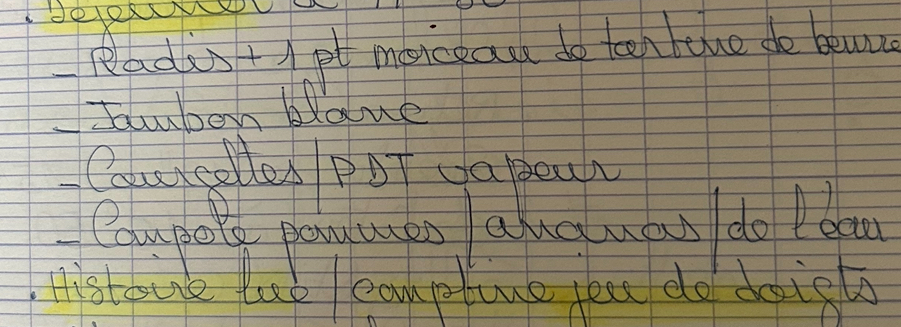 . Déjeuner à
- Radis + 1 pt morceau de tartine de beurre
- Jambon blanc
- Courgettes / PDT vapeur
- Compote pommes / ananas / de l'eau
. Histoire lue / comptine jeu de doigts